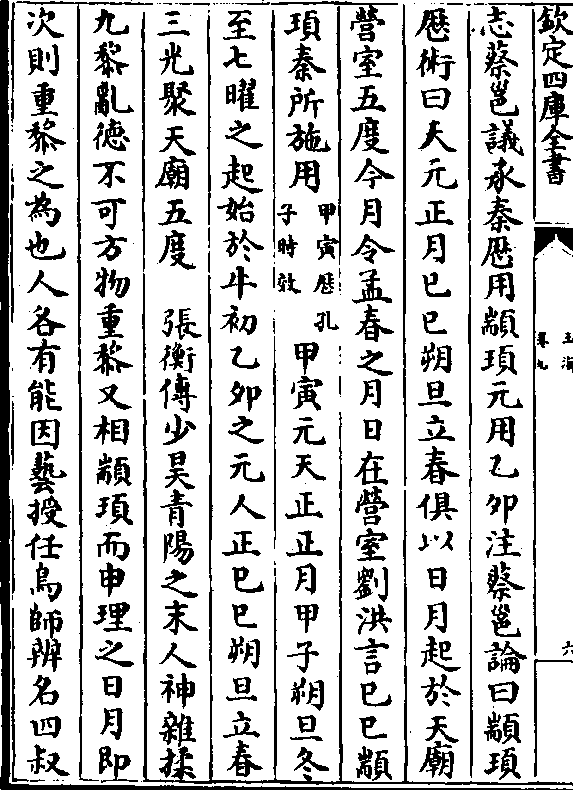 欽定四庫全書
玉海
卷九
六
志蔡邕議承秦厯用顓頊元用乙夘注蔡邕論曰顓頊
厯術曰天元正月己巳朔旦立春俱以日月起於天廟
營室五度今月令孟春之月日在營室劉洪言己巳顓
項秦所施用甲寅厯孔子時效甲寅元天正正月甲子朔旦冬
至七曜之起始於牛初乙夘之元人正己巳朔旦立春
三光聚天廟五度 張衡傳少昊青陽之末人神雜揉
九黎亂德不可方物重黎又相顓頊而申理之日月即
次則重黎之為也人各有能因藝授任鳥師辨名四叔